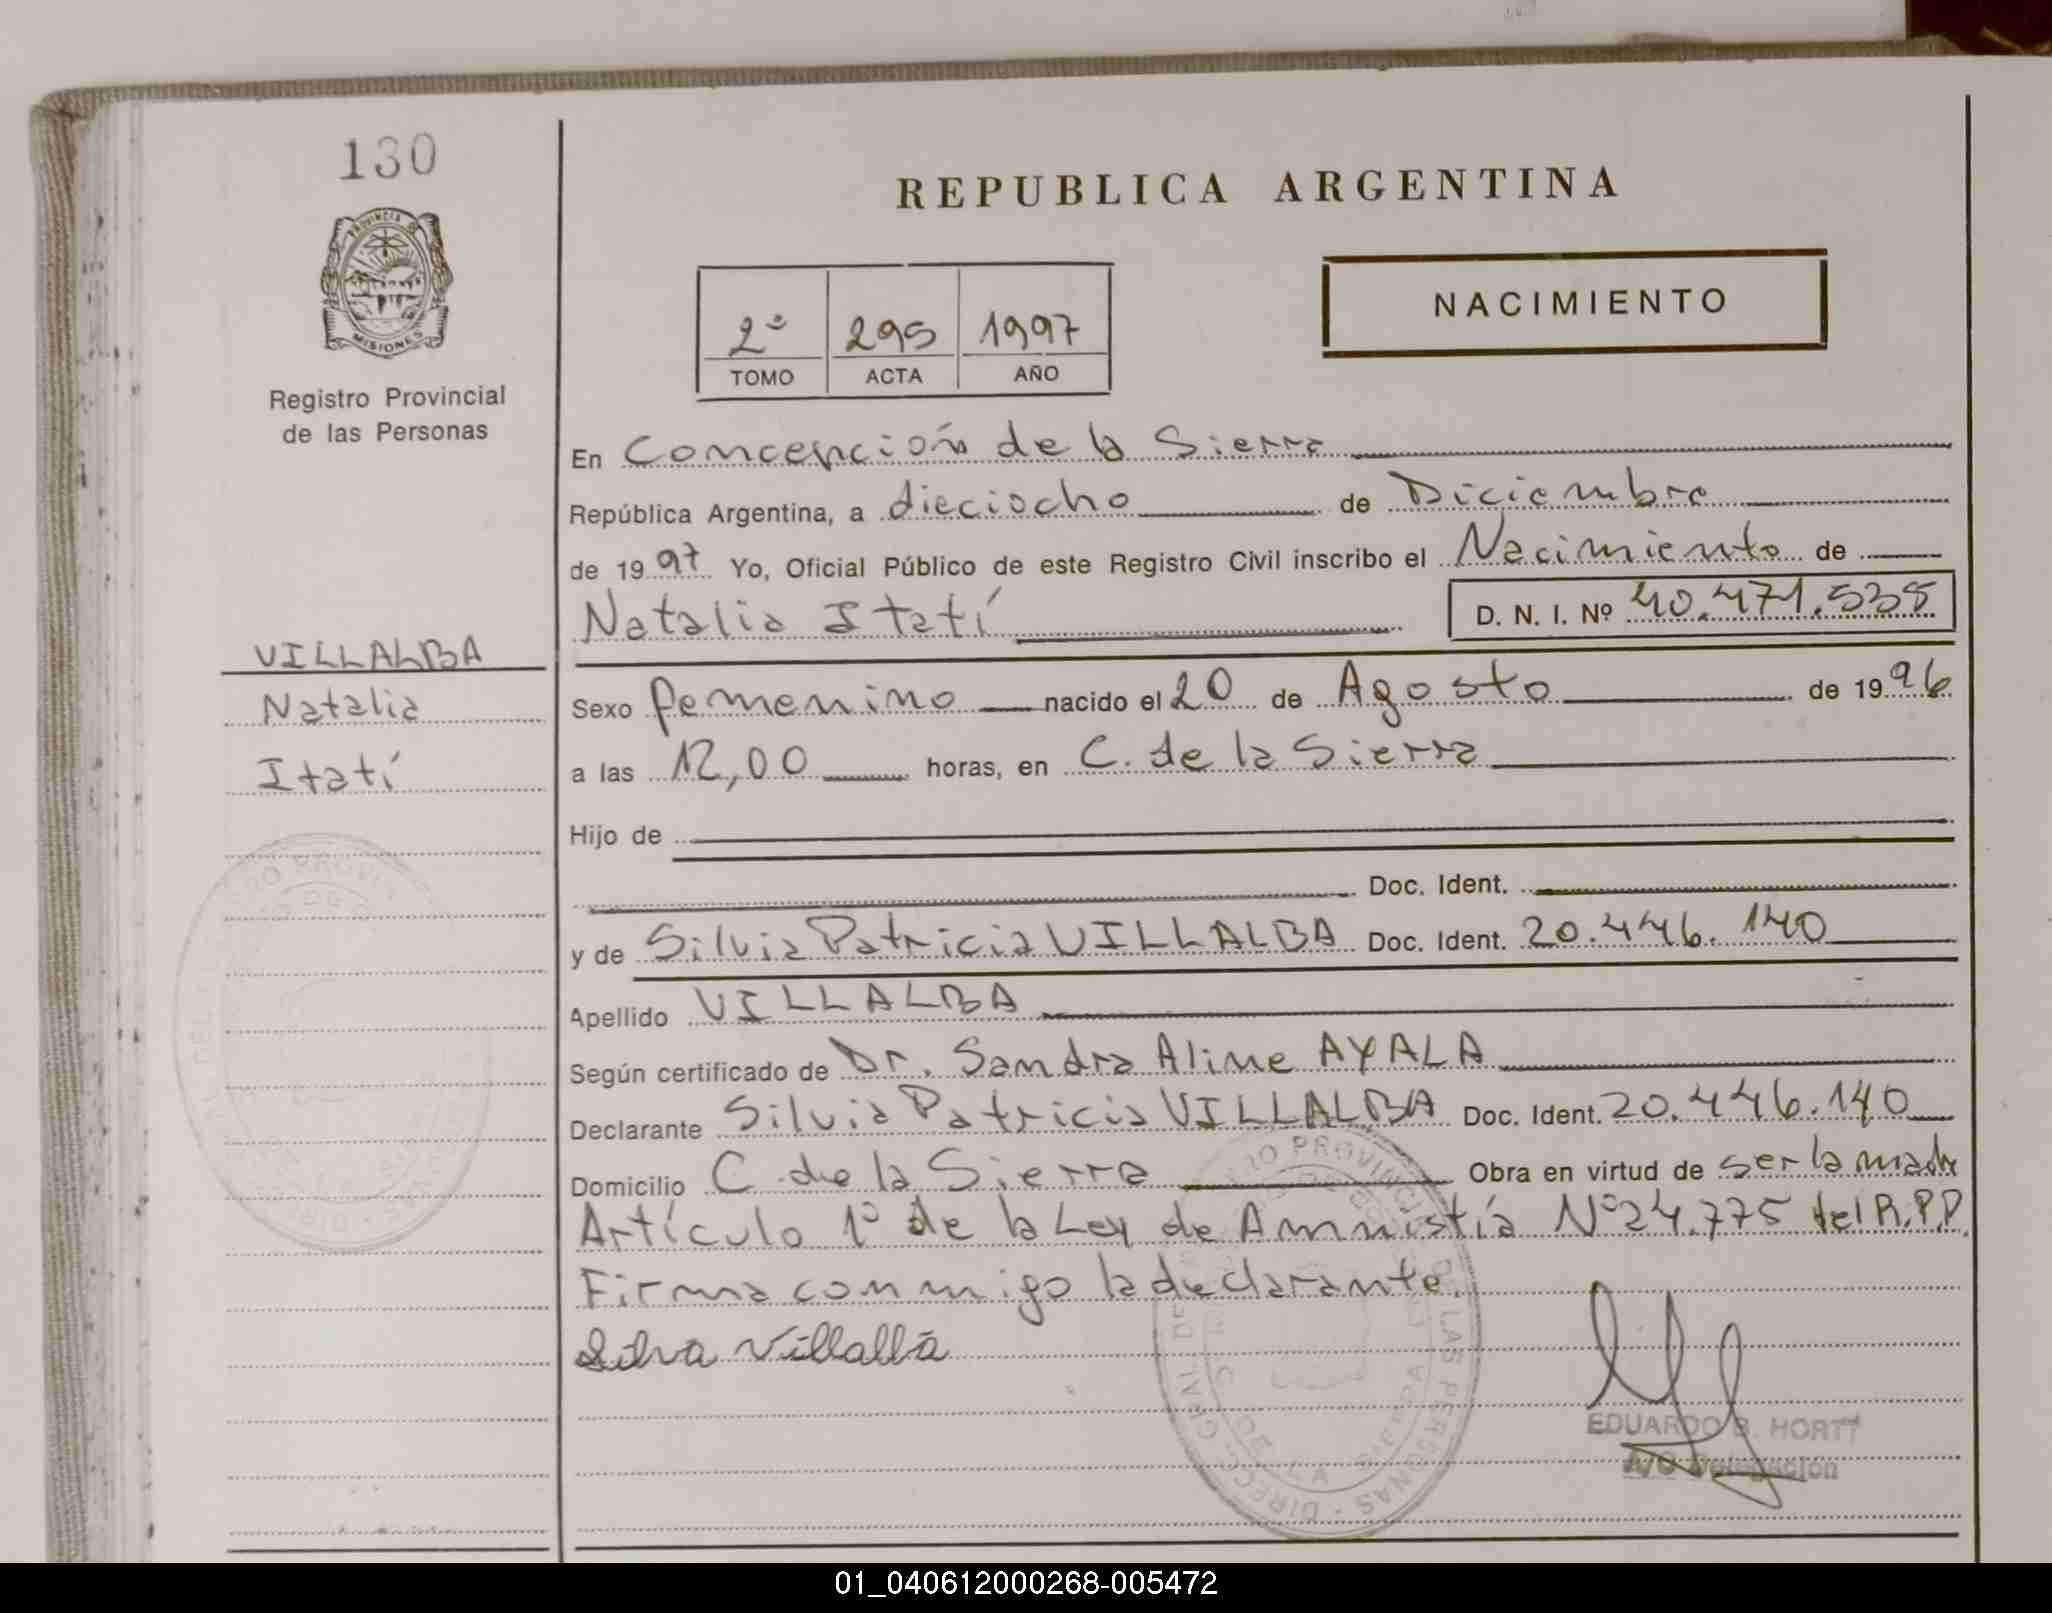 130
PROVINCIA DE
MISIONES
Registro Provincial
de las Personas
VILLALBA
Natalia
Itatí
REPUBLICA ARGENTINA
NACIMIENTO
2º 295 1997
TOMO ACTA AÑO
En Concepción de la Sierra
República Argentina, a dieciocho de Diciembre
de 1997 Yo, Oficial Público de este Registro Civil inscribo el Nacimiento de
Natalia Itatí D. N. I. Nº 40.471.535
Sexo femenino nacido el 20 de Agosto de 1996
a las 12,00 horas, en C. de la Sierra
Hijo de
Doc. Ident.
y de Silvia Patricia VILLALBA Doc. Ident. 20.446.140
Apellido VILLALBA
Según certificado de Dr. Sandra Aline AYALA
Declarante Silvia Patricia VILLALBA Doc. Ident. 20.446.140
Domicilio C. de la Sierra Obra en virtud de ser la madre
Artículo 1º de la Ley de Amnistía Nº 24.775 del R.P.P.
Firma conmigo la declarante.
Silvia Villalba
EDUARDO B. HORTT
A/C Delegación
01_040612000268-005472